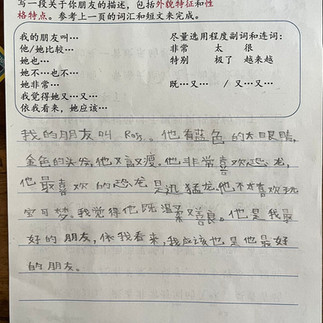 写一段关于你朋友的描述，包括外貌特征和性
格特点。参考上一页的词汇和短文来完成。
我的朋友叫…
他/她比较…
她也…
她不…也不…
她非常…
我觉得她又…又…
依我看来，她应该…
尽量选用程度副词和连词：
非常 太 很
特别 极了 越来越
既…又…/ 又…又…
我的朋友叫 。他有蓝色的大眼睛，
金色的头发，他又高又瘦。他非常喜欢恐龙，
他最喜欢的恐龙是迅猛龙。他不太喜欢玩
宝可梦。我觉得他既温柔又善良。他是我最
好的朋友，依我看来，我应该也是他最好
的朋友。